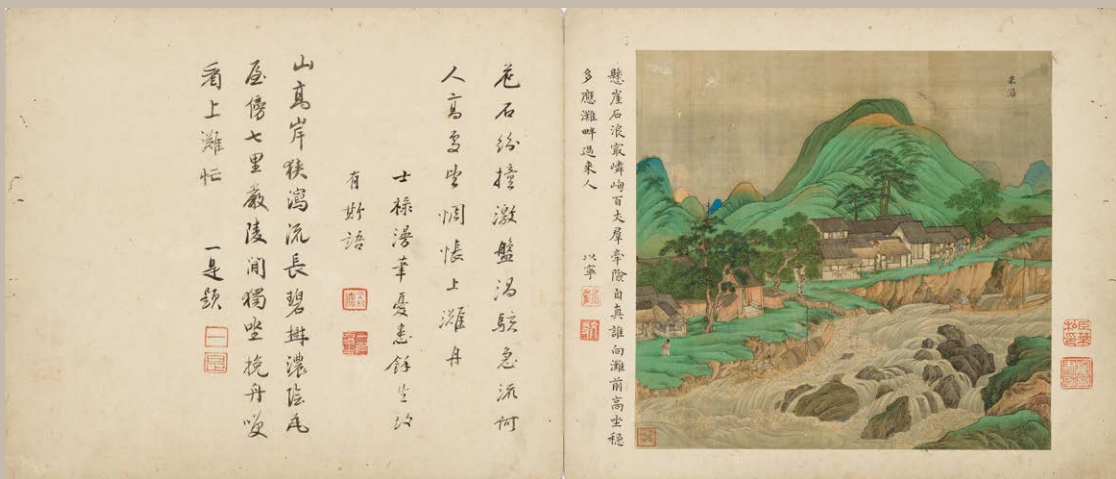 米灘
懸崖石浪最嶙峋百丈羣牽險自真誰向灘前高坐穩
多應灘畔過來人
以寧
花石紛撞激盤渦駭急流何
人高處坐惆悵上灘舟
士祿漫筆憂患餘生故
有斯語
山高岸狹瀉流長碧樹濃陰瓦
屋傍七里嚴陵間獨坐挽舟喚
看上灘忙
一是題